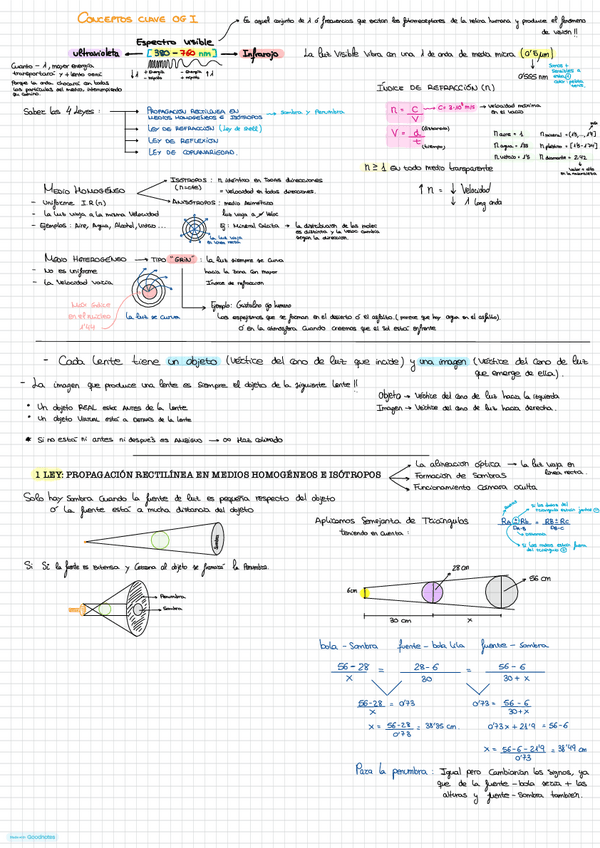 CONCEPTOS CLAVE OG I.
Es aquel conjunto de λ o frecuencias que excitan los fotorreceptores de la retina humana y produce el fenómeno de visión!!
Espectro visible
ultravioleta [380 - 760 nm] Infrarojo
La luz visible vibra con una λ de onda de media micra (0'5μm)
0'555 nm
Cuanto - λ, mayor energía
+ Energía
- Energía
ÍNDICE DE REFRACCIÓN (n)
Saber las 4 leyes:
PROPAGACIÓN RECTILÍNEA EN MEDIOS HOMOGÉNEOS E ISÓTROPOS → Sombra y Penumbra
LEY DE REFRACCIÓN (Ley de Snell)
LEY DE REFLEXIÓN
LEY DE COPLANARIEDAD.
n = C / V
C = 3·10⁸ m/s → Velocidad máxima en el vacío
V = d / t (distancia) (tiempo)
n aire = 1
n agua = 1'33
n vidrio = 1'5
n diamante = 2'42
n ≥ 1 En todo medio transparente
↑ n = ↓ Velocidad
↓ λ long onda
MEDIO HOMOGÉNEO
- Uniforme I.R (n)
- La luz viaja a la misma Velocidad
- Ejemplos: Aire, Agua, Alcohol, Vidrio...
ISÓTROPOS: n idéntico en todas direcciones
(n=cte) = Velocidad en todas direcciones.
ANISÓTROPOS: medio asimétrico
luz viaja a ≠ Veloc
Ej: Mineral Calcita → la distribución de las molec es distinta y la veloc cambia según la dirección.
la luz viaja en línea recta
MEDIO HETEROGÉNEO → TIPO "GRIN": la luz siempre se curva
hacia la zona con mayor
Índice de refracción
- No es uniforme
- La velocidad varía
Mayor índice en el núcleo 1'44
La luz se curva
Ejemplo: Cristalino ojo humano
Los espejismos que se forman en el desierto o el asfalto. (parece que hay agua en el asfalto).
O en la atmósfera cuando creemos que el sol está enfrente
- Cada lente tiene un objeto (Vértice del cono de luz que incide) y una imagen (vértice del cono de luz que emerge de ella).
- La imagen que produce una lente es siempre el objeto de la siguiente lente!!
Objeto → Vértice del cono de luz hacia la izquierda
Imagen → Vértice del cono de luz hacia derecha.
* Un objeto REAL está ANTES de la lente
* Un objeto VIRTUAL está a DETRÁS de la lente
* Si no está ni antes ni después es AMBIGUO → ∞ Mas colimado
1 LEY: PROPAGACIÓN RECTILÍNEA EN MEDIOS HOMOGÉNEOS E ISÓTROPOS
La alineación óptica → la luz viaja en línea recta.
Formación de Sombras
Funcionamiento Cámara oculta
Solo hay Sombra cuando la fuente de luz es pequeña respecto del objeto
O la fuente está a mucha distancia del objeto
Sombra
Aplicamos Semejanza de Triángulos
teniendo en cuenta:
Si: Si la fuente es Extensa y Cercana al objeto se formará la Penumbra.
Penumbra
Sombra
6cm
28 cm
56 cm
30 cm
x
bola - Sombra fuente - bola lila fuente - Sombra
56 - 28 / x = 28 - 6 / 30 = 56 - 6 / 30 + x
56-28 / x = 0'73
0'73 = 56 - 6 / 30+x
x = 56-28 / 0'73 = 38'35 cm.
0'73x + 21'9 = 56-6
x = 56-6-21'9 / 0'73 = 38'49 cm
Para la penumbra: Igual pero cambiarían los signos, ya
que de la fuente - bola sería + las
alturas y fuente - Sombra también.
Goodnotes